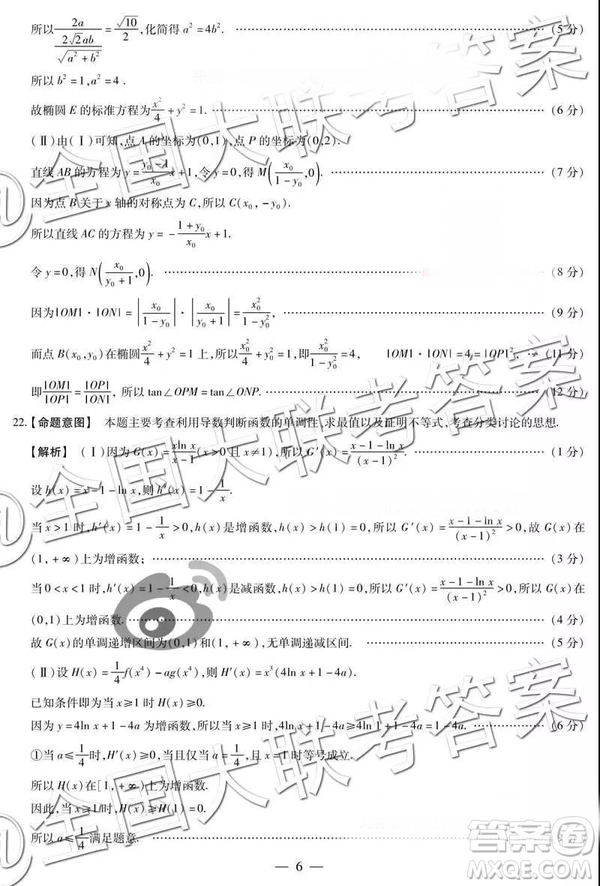 所以\frac{2a}{\frac{2\sqrt{2}ab}{\sqrt{a^2+b^2}}}=\frac{\sqrt{10}}{2},化简得 a^2=4b^2. (5分)
所以 b^2=1,a^2=4.
故椭圆 E 的标准方程为\frac{x^2}{4}+y^2=1. (6分)
(Ⅱ)由(Ⅰ)可知,点 A 的坐标为(0,1),点 P 的坐标为(0,2).
直线 AB 的方程为 y=\frac{y_0-1}{x_0}x+1,令 y=0,得 M(\frac{x_0}{1-y_0},0). (7分)
因为点 B 关于 x 轴的对称点为 C,所以 C(x_0,-y_0).
所以直线 AC 的方程为 y=-\frac{1+y_0}{x_0}x+1.
令 y=0,得 N(\frac{x_0}{y_0+1},0). (8分)
因为|OM|·|ON|=|\frac{x_0}{1-y_0}|·|\frac{x_0}{y_0+1}|=\frac{x_0^2}{1-y_0^2}, (9分)
而点 B(x_0,y_0)在椭圆\frac{x^2}{4}+y^2=1 上,所以\frac{x_0^2}{4}+y_0^2=1,即\frac{x_0^2}{1-y_0^2}=4, |OM|·|ON|=4=|OP|^2, (11分)
即\frac{|OM|}{|OP|}=\frac{|OP|}{|ON|},所以 tan∠OPM=tan∠ONP. (12分)
22.【命题意图】 本题主要考查利用导数判断函数的单调性,求最值以及证明不等式,考查分类讨论的思想.
【解析】 (Ⅰ)因为 G(x)=\frac{xln x}{x-1}(x>0且 x≠1),所以 G′(x)=\frac{x-1-ln x}{(x-1)^2}. (1分)
设 h(x)=x-1-ln x,则 h′(x)=1-\frac{1}{x}.
当 x>1 时,h′(x)=1-\frac{1}{x}>0,h(x)是增函数,h(x)>h(1)=0,所以 G′(x)=\frac{x-1-ln x}{(x-1)^2}>0,故 G(x)在
(1,+∞)上为增函数; (3分)
当 0<x<1 时,h′(x)=1-\frac{1}{x}<0,h(x)是减函数,h(x)>h(1)=0,所以 G′(x)=\frac{x-1-ln x}{(x-1)^2}>0,所以 G(x)在
(0,1)上为增函数. (4分)
故 G(x)的单调递增区间为(0,1)和(1,+∞),无单调递减区间.  (5分)
(Ⅱ)设 H(x)=\frac{1}{4}f(x^4)-ag(x^4),则 H′(x)=x^3(4ln x+1-4a).
已知条件即为当 x≥1 时 H(x)≥0.
因为 y=4ln x+1-4a 为增函数,所以当 x≥1 时,4ln x+1-4a≥1-4a. (6分)
①当 a≤\frac{1}{4}时,H′(x)≥0,当且仅当 a=\frac{1}{4},且 x=1 时等号成立.
所以 H(x)在[1,+∞)上为增函数.
因此,当 x≥1 时,H(x)≥H(1)=0.
所以 a≤\frac{1}{4}满足题意.
— 6 —
@全国大联考答案
@全国大联考答案
@全国大联考答案
答案卷